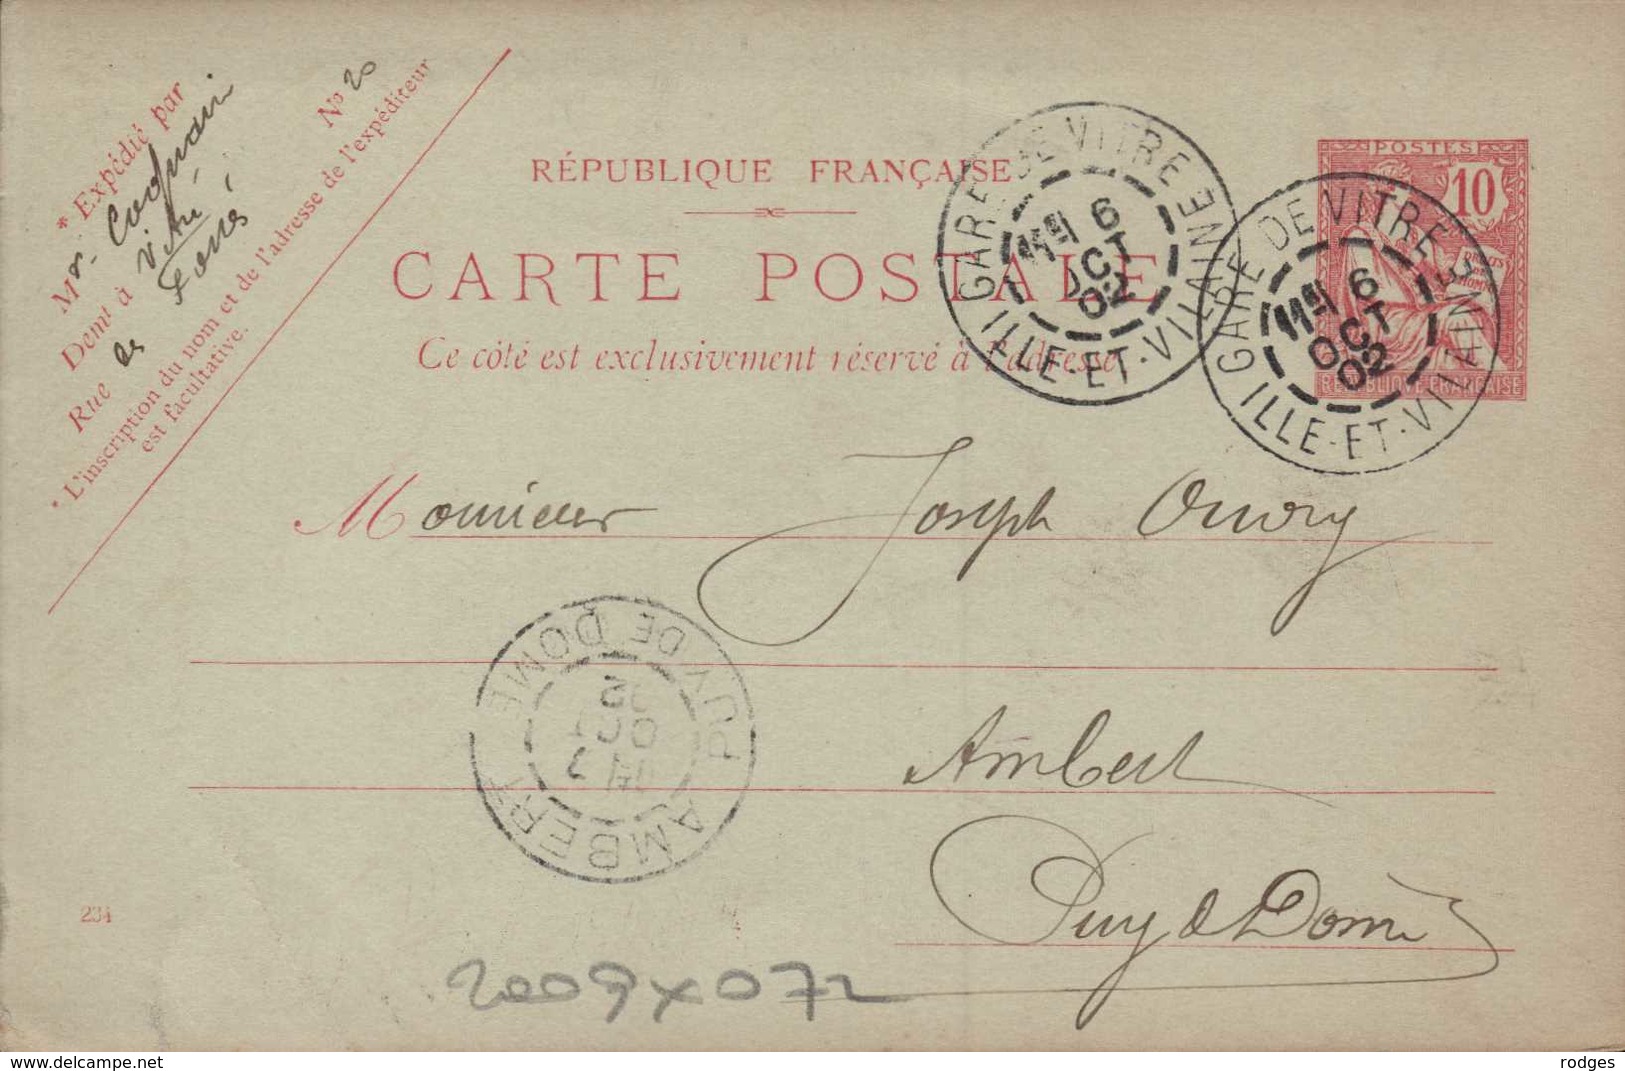 * Expédié par
Mr. Coquain
Demt à Vitré
Rue de Fossés No 20
* L'inscription du nom et de l'adresse de l'expéditeur
est facultative.
RÉPUBLIQUE FRANÇAISE
CARTE POSTALE
Ce côté est exclusivement réservé à l'adresse
GARE DE VITRE
6
OCT
02
ILLE-ET-VILAINE
GARE DE VITRE
6
OCT
02
ILLE-ET-VILAINE
POSTES
10
RÉPUBLIQUE FRANÇAISE
Monsieur Joseph
Ambert
Puy de Dome
AMBERT
7
OCT
02
PUY DE DOME
234
2009x072
www.delcampe.net
rodges